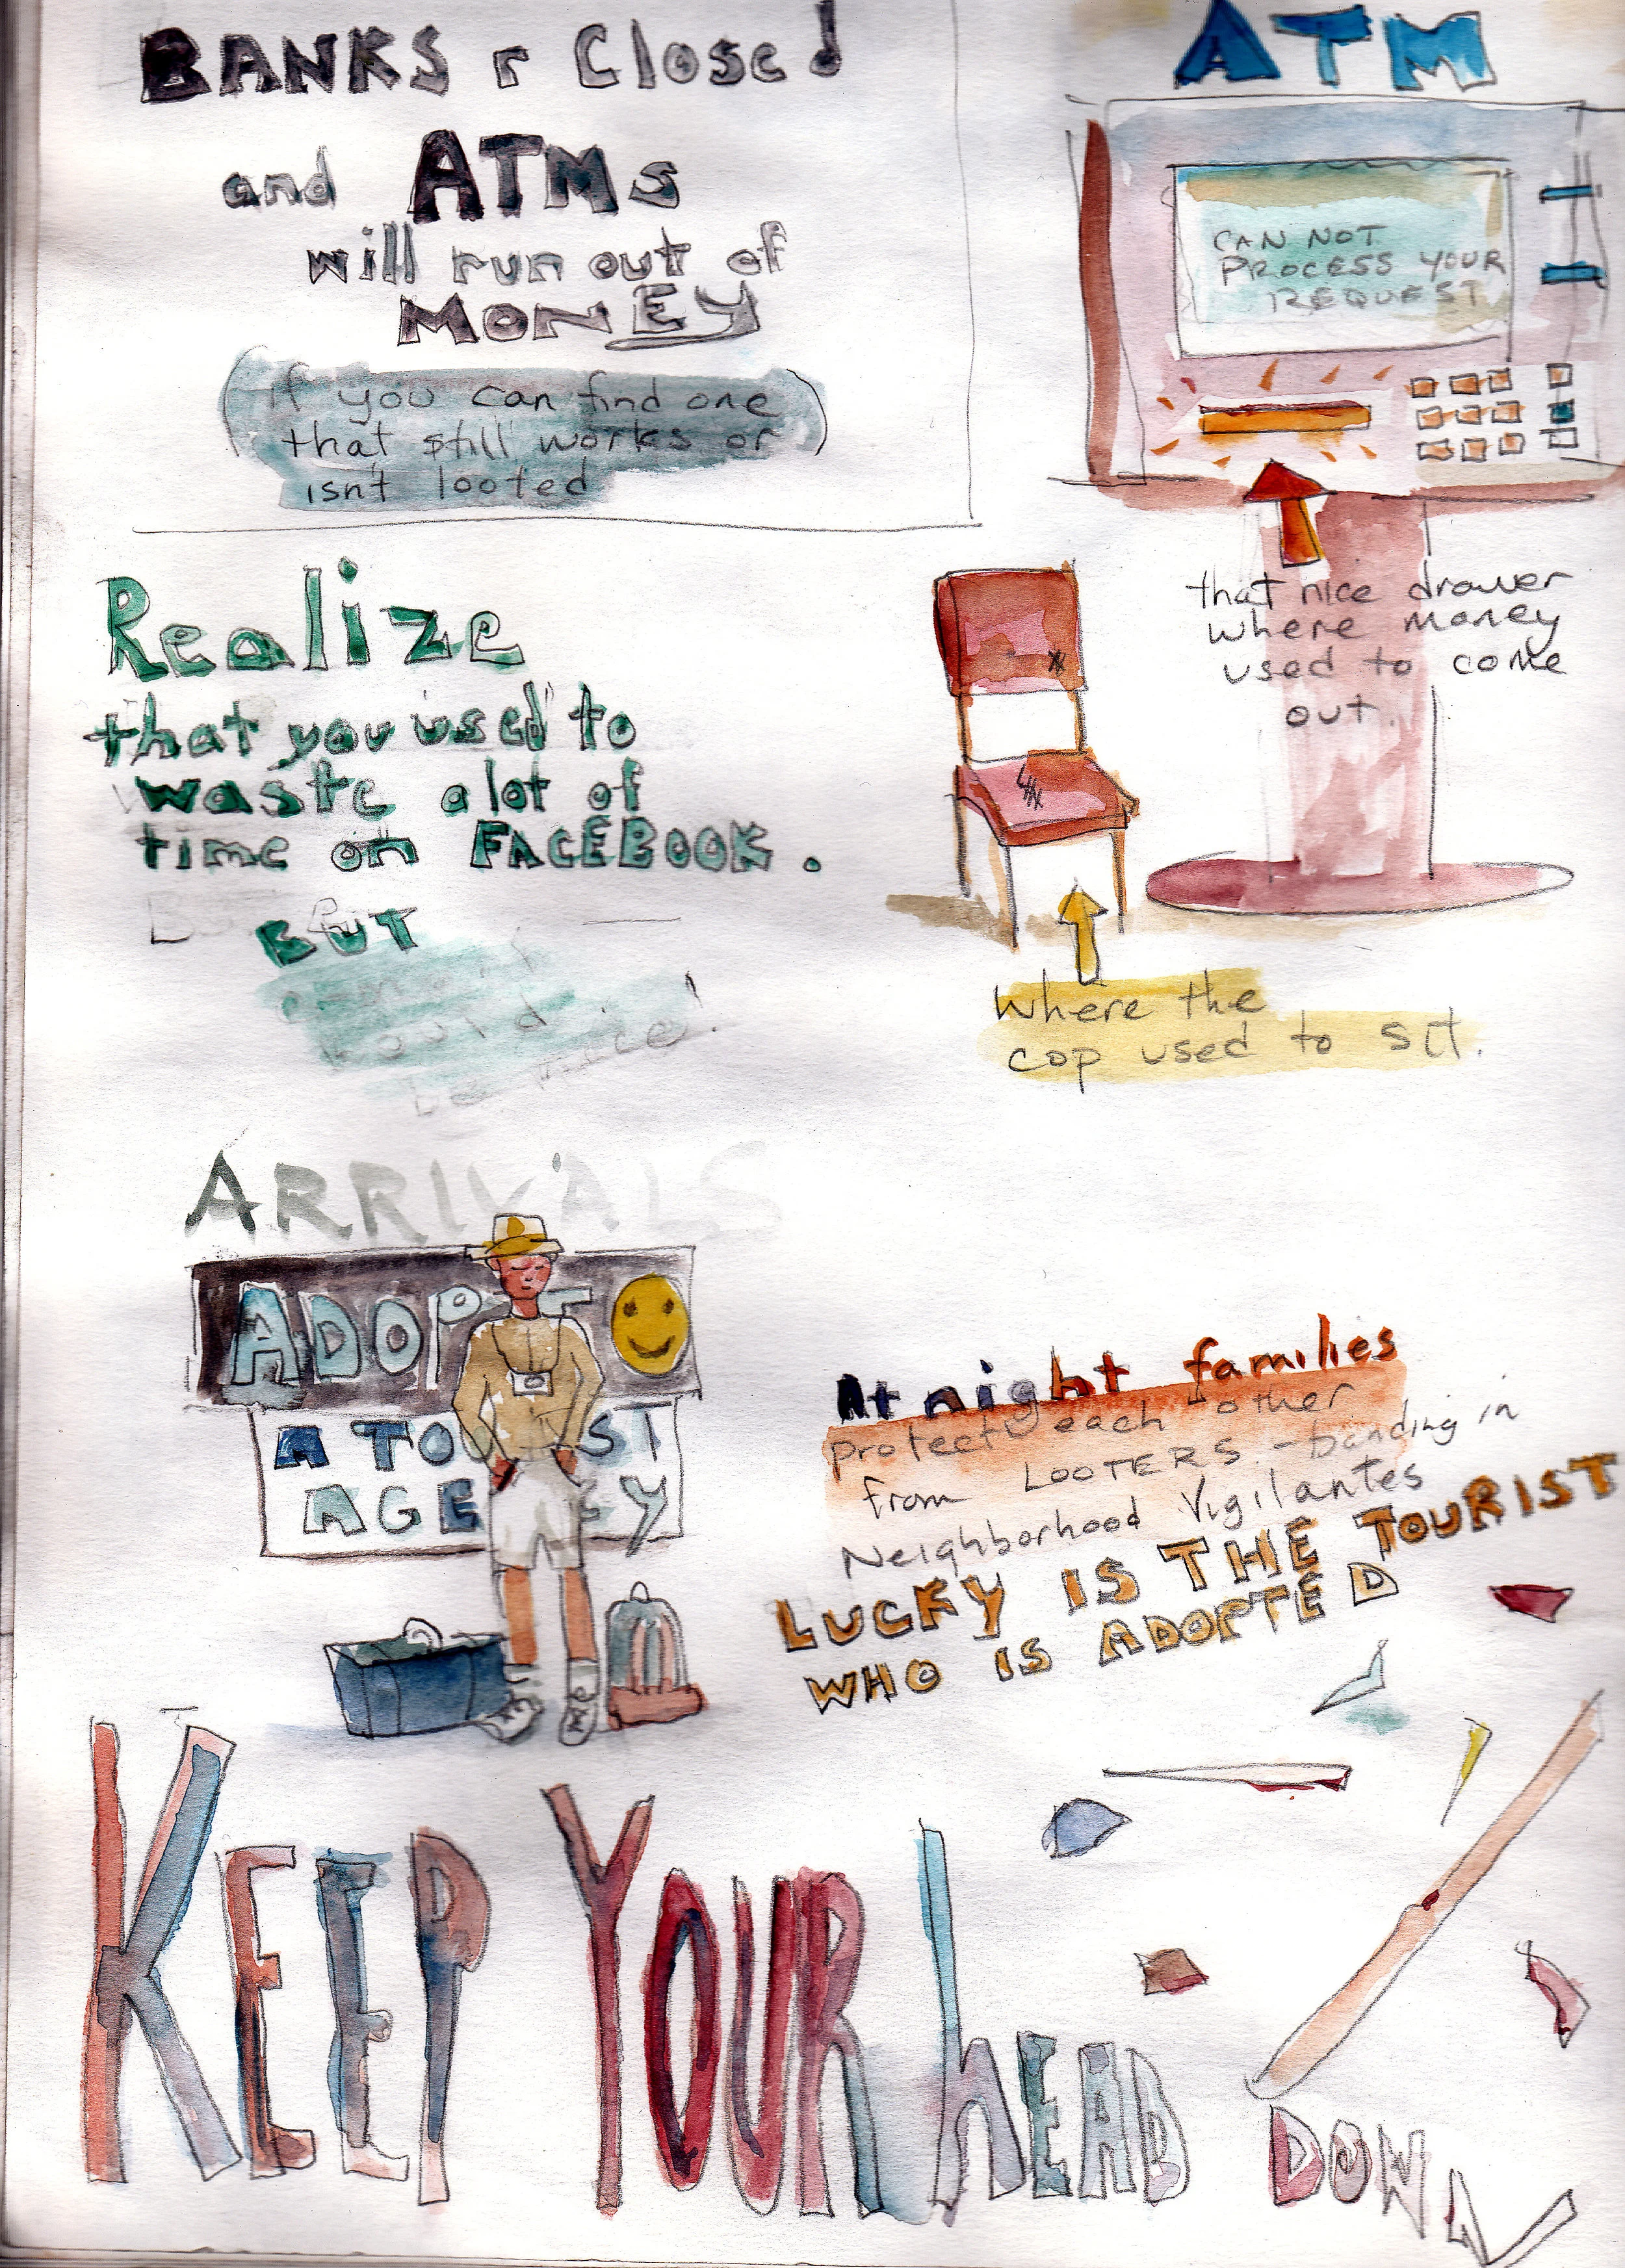 BANKS r Closed
and ATMs
will run out of
MONEY
(if you can find one
that still works or)
isn't looted
ATM
CAN NOT
PROCESS YOUR
REQUEST
that nice drawer
where money
used to come
out.
Realize
that you used to
waste a lot of
time on FACEBOOK.
BUT
would
be nice!
where the
cop used to sit.
ARRIVALS
ADOPT
A TOURIST
AGENCY
At night families
protect each other
from LOOTERS - banding in
Neighborhood Vigilantes
LUCKY IS THE TOURIST
WHO IS ADOPTED
KEEP YOUR hEAD DOWN